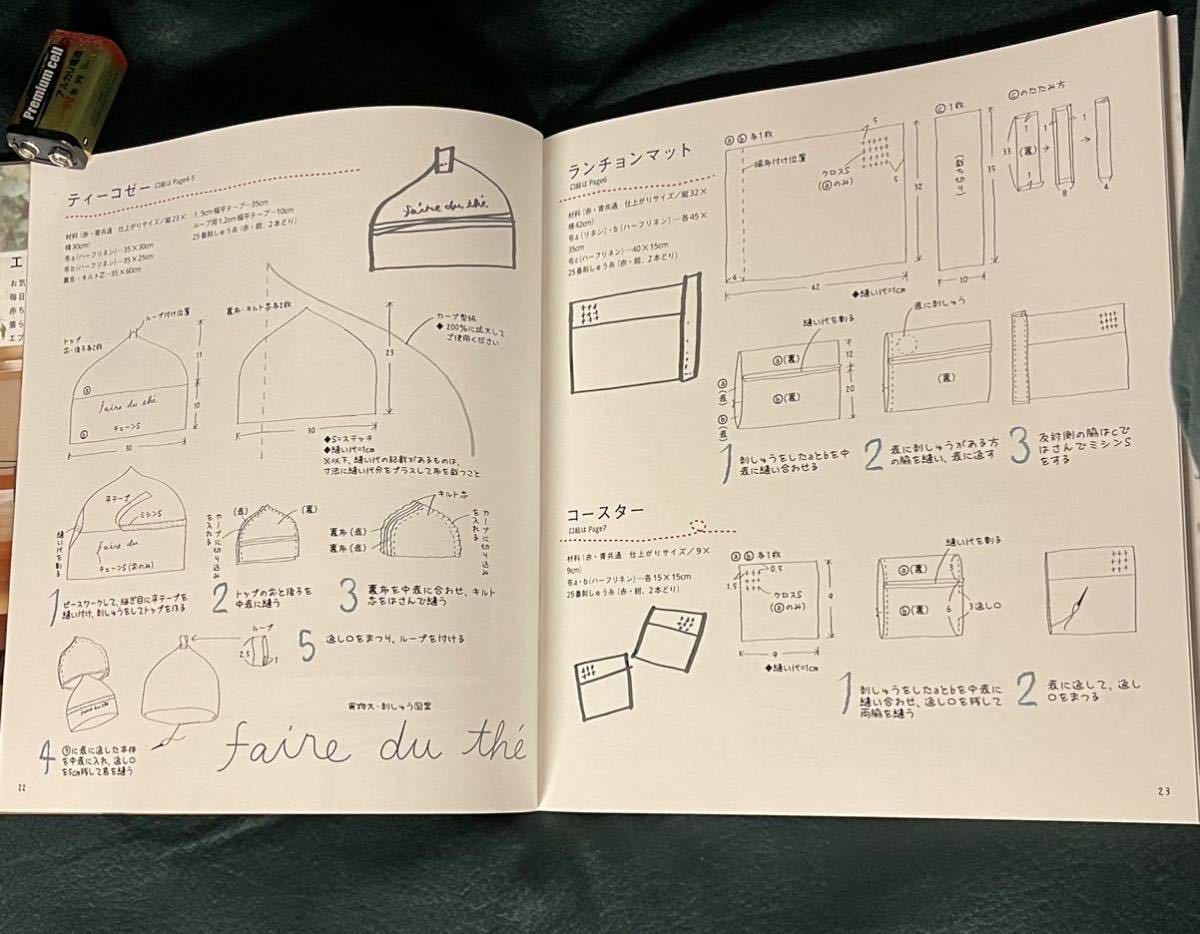 Premium cell
アルカリ電池
9V
エ
お気
毎日
赤ち
着ら
エプ
ティーコゼー 口絵は Page4-5
材料(赤・青共通 仕上がりサイズ/縦23×
横30cm)
布a(ハーフリネン)…35×30cm
布b(ハーフリネン)…35×25cm
裏布・キルト芯…35×60cm
1.5cm幅平テープ…35cm
ループ用1.2cm幅平テープ…10cm
25番刺しゅう糸(赤・紺、2本どり)
faire du thé
トップ
前・後ろ各2枚
ループ付け位置
13
10
ⓐ
faire du thé
ⓑ
チェーンS
30
裏布・キルト芯各2枚
23
30
カーブ型紙
◆200%に拡大して
ご使用ください
◆S=ステッチ
◆縫い代=1cm
※以下、縫い代の記載があるものは、
寸法に縫い代分をプラスして布を裁つこと
平テープ
ミシンS
faire du
チェーンS(前のみ)
縫い代を割る
1 ピースワークして、継ぎ目に平テープを
縫い付け、刺しゅうをしてトップを作る
カーブに切り込み
を入れる
(表)
(裏)
2 トップの前と後ろを
中表に縫う
キルト芯
裏布(表)
裏布(表)
カーブに切り込み
を入れる
3 裏布を中表に合わせ、キルト
芯をはさんで縫う
faire du thé
4 ③に表に返した本体
を中表に入れ、返し口
を5cm残して底を縫う
ループ
2.5
1
5 返し口をまつり、ループを付ける
実物大・刺しゅう図案
faire du thé
22
ランチョンマット
口絵は Page6
材料(赤・青共通 仕上がりサイズ/縦32×
横42cm)
布a(リネン)・b(ハーフリネン)…各45×
35cm
布c(ハーフリネン)…40×15cm
25番刺しゅう糸(赤・紺、2本どり)
ⓐ ⓑ 各1枚
端布付け位置
クロスS
(ⓐのみ)
5
5
32
4
42
◆縫い代=1cm
ⓒ1枚
(裁ち切り)
35
10
ⓒのたたみ方
33
1
(裏)
1
1
1
8
4
縫い代を割る
ⓐ(裏)
ⓑ(裏)
ⓐ(表)
ⓑ(表)
12
20
1 刺しゅうをしたaとbを中
表に縫い合わせる
表に刺しゅう
(裏)
2 表に刺しゅうがある方
の脇を縫い、表に返す
3 反対側の脇はcで
はさんでミシンS
をする
コースター
口絵は Page7
材料(赤・青共通 仕上がりサイズ/9×
9cm)
布a・b(ハーフリネン)…各15×15cm
25番刺しゅう糸(赤・紺、2本どり)
ⓐ ⓑ 各1枚
0.5
1.5
クロスS
(ⓐのみ)
9
9
◆縫い代=1cm
縫い代を割る
ⓐ(裏)
ⓑ(裏)
3
6
3返し口
1 刺しゅうをしたaとbを中表に
縫い合わせ、返し口を残して
両脇を縫う
2 表に返して、返し
口をまつる
23